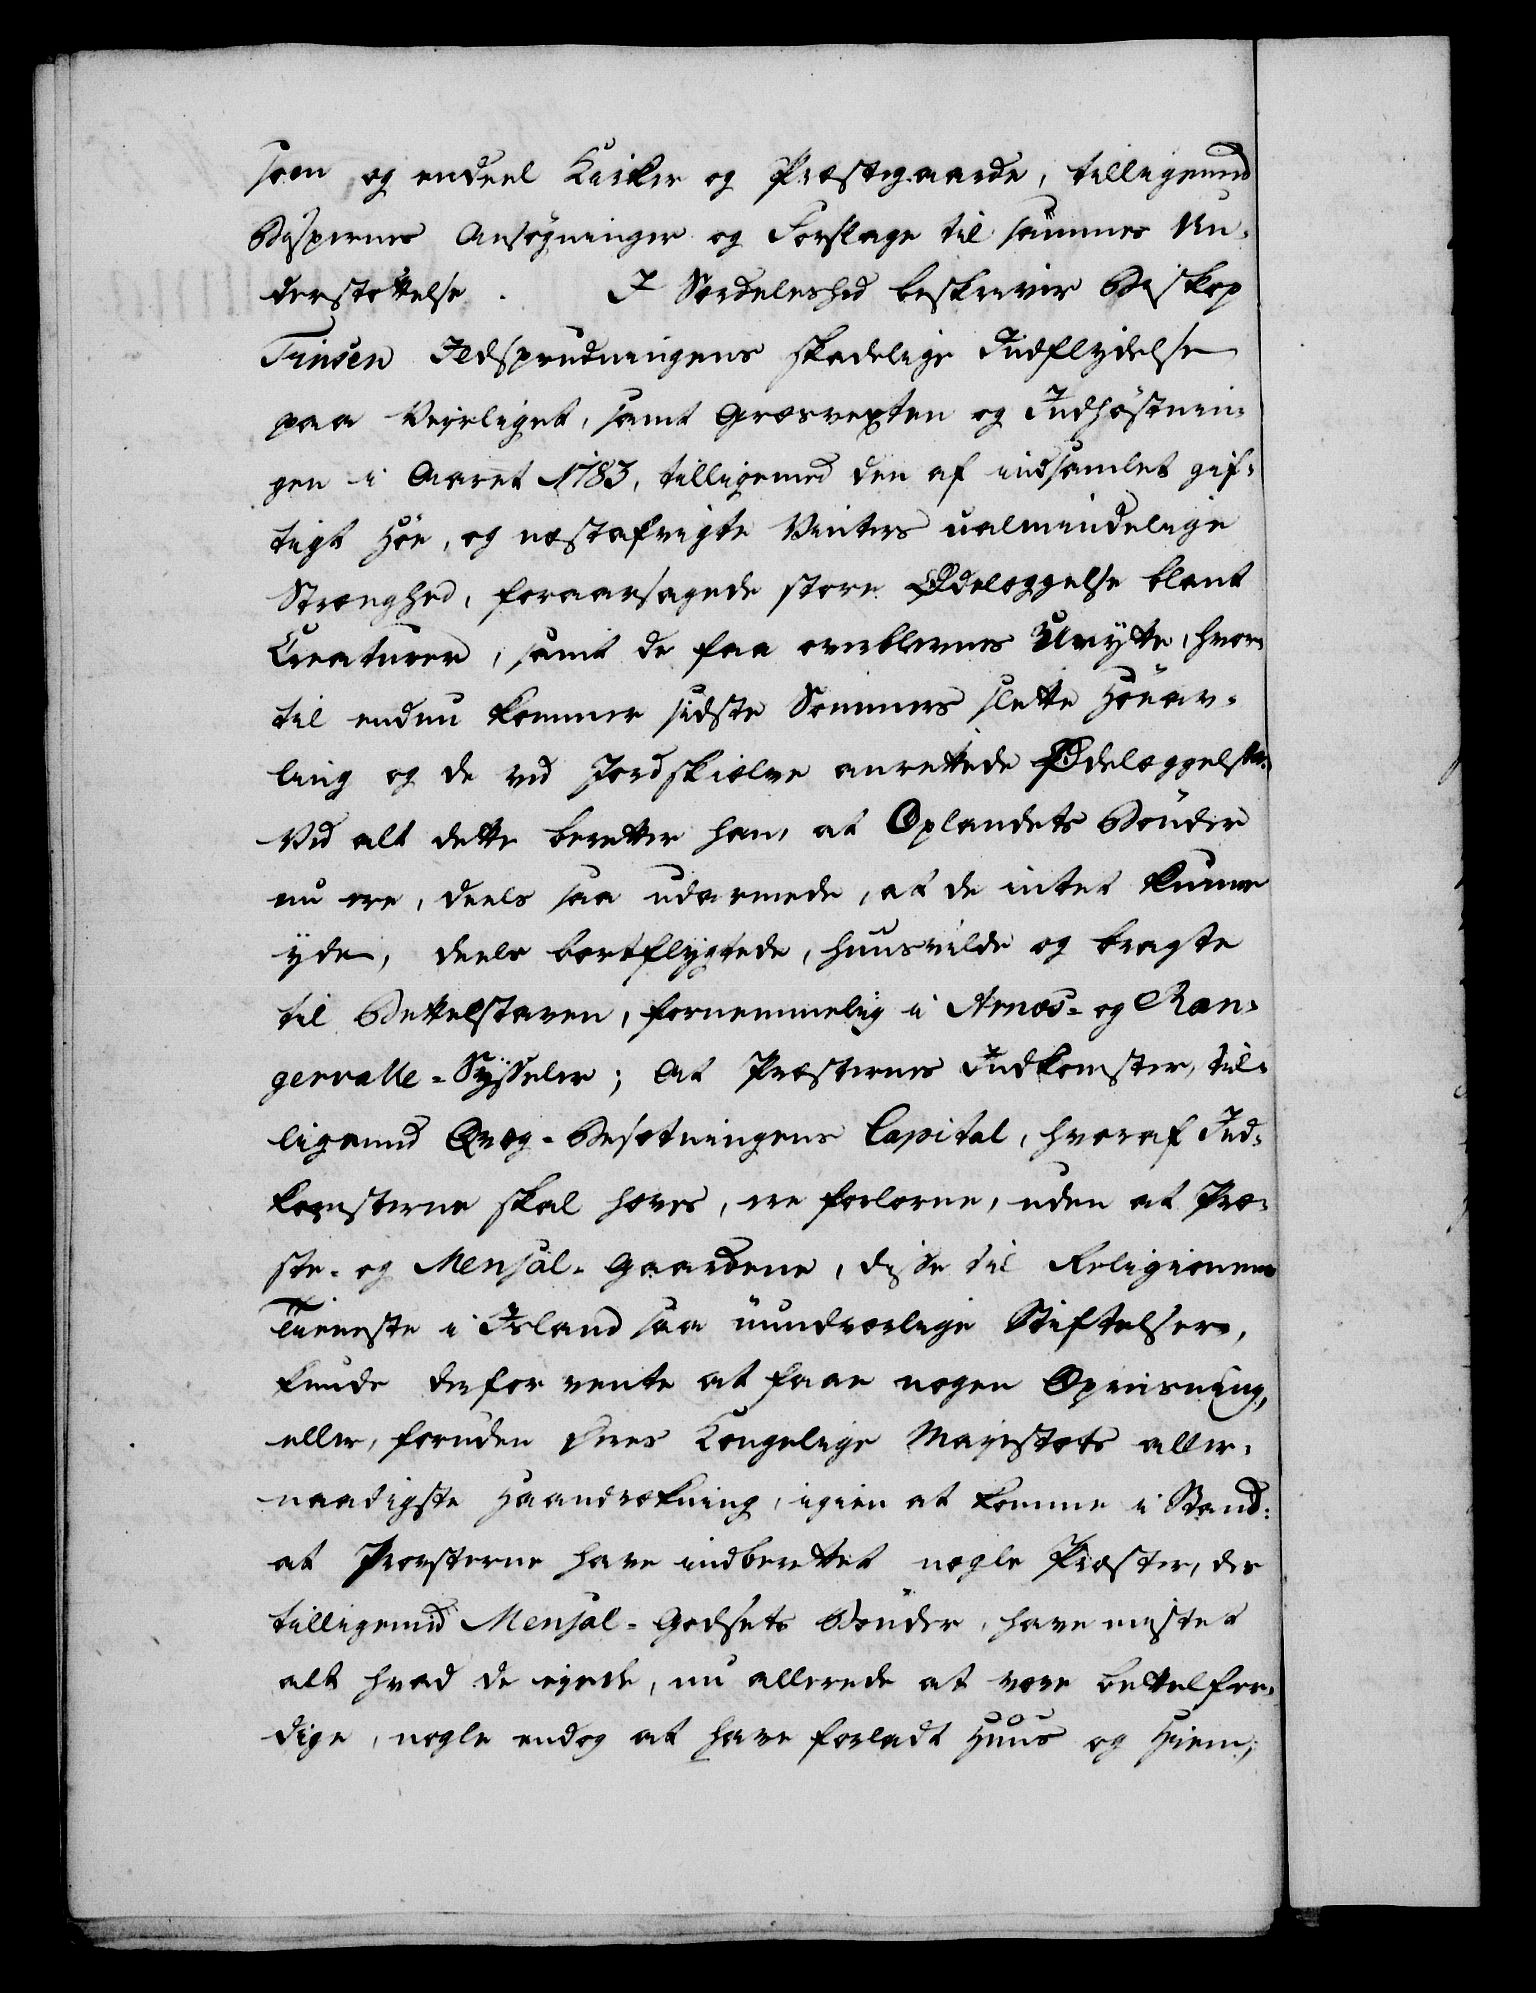 som og endeel Kirker og Præstegaarde, tilligemed
Bispernes Ansøgninger og Forslage til sammes Un-
derstøttelse. I Særdeleshed beskriver Biskop
Finsen Ildsprudningens skadelige Indflydelse
paa Veirliget, samt Græsvexten og Indhøstnin-
gen i Aaret 1783, tilligemed den af indsamlet gif-
tigt Høe, og næstafvigte Vinters ualmindelige
Strænghed, foraarsagede store Ødelæggelse blant
Creaturer, samt de faa overblevnes Unytte, hvor-
til endnu kommer sidste Sommers slette Høeav-
ling og de ved Jordskiælve anrettede Ødelæggelser.
Ved alt dette beretter han, at Oplandets Bønder
nu ere, deels saa udarmede, at de intet kunne
yde, deels bortflygtede, huusvilde og bragte
til Bettelstaven, fornemmelig i Arnæs- og Ran-
gervalle-Sysseler; At Præsternes Indkomster, til-
ligemed Qvæg-Besætningens Capital, hvoraf Ind-
komsterne skal haves, ere forlorne, uden at Præ-
ste- og Mensal-Gaardene, disse til Religionens
Tieneste i Island saa uundværlige Stiftelser,
kunde derfor vente at faae nogen Opreisning,
eller, foruden Deres Kongelige Majestæts aller-
naadigste Haandrækning, igien at komme i Stand:
at Provsterne have indberettet nogle Præster, der
tilligemed Mensal-Godsets Bønder, have mistet
alt hvad de eyede, nu allerede at være bettelfær-
dige, nogle endog at have forladt Huus og Hiem;